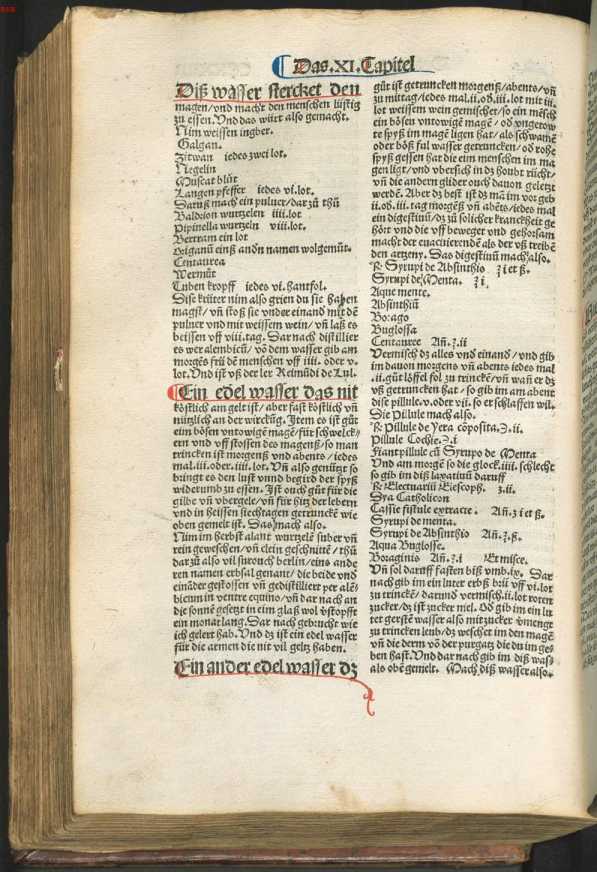 Das .XI. Capitel
Diß wasser stercket den
magen/vnd macht den menschen lüstig
zů essen. Vnd das würt also gemacht.
Nim weissen ingber.
Galgan.
Zitwan iedes zwei lot.
Negelin
Muscat blüt
Langen pfeffer iedes vi. lot.
Daruß mach ein puluer/dar zů thů
Baldrion wurtzelen iiii. lot
Pipinella wurtzeln viii. lot.
Bertram ein lot
Origanū einß andn namen wolgemůt.
Centaurea
Wermůt
Tuben kropff iedes vi. hantfol.
Dise krüter nim also grien du sie haben
magst/vñ stoß sie vnder einand mit dē
puluer vnd mit weissem wein/vñ laß es
beissen vff viii. tag. Dar nach distillier
es wer alembicū/vō dem wasser gib am
morgēs frü dē menschen vff iiii. oder v.
lot. Vnd ist vß der ler Reimūdi de Lul.
Ein edel wasser das nit
köstlich am gelt ist/aber fast köstlich vñ
nützlich an der wirckūg. Item es ist gůt
eim bösen vntowigē magē/für schwelck/
ern vnd vff stossen des magenß/so man
trincken ist morgenß vnd abents/iedes
mal. iii. oder. iiii. lot. Vñ also genützt so
bringt es den lust vnnd begird der spyß
widerumb zů essen. Ist ouch gůt für die
gilbe vñ vbergele/vñ für hitz der lebern
vnd in heissen siechtagen getrunckē wie
oben gemelt ist. Das mach also.
Nim im herbst alant wurtzelē suber vñ
rein geweschen/vñ clein geschnittē/thů
dar zů also vil surouch berlin/eins ande
ren namen erbsal genant/die beide vnd
eināder gestossen vñ gedistilliert per alē/
bicum in ventre equino/vñ dar nach an
die sonnē gesetzt in eim glaß wol v̈stopfft
ein monat lang. Dar nach gebrucht wie
ich gelert hab. Vnd dz ist ein edel wasser
für die armen die nit vil geltz haben.
Ein ander edel wasser dz
gůt ist getruncken morgenß/abents/vñ
zů mittag/iedes mal. ii. oð. iii. lot mit iii.
lot weissem wein gemischet/so ein mēsch
ein bösen vntowigē magē/oð vngetow
te spyß im magē ligen hat/als schwamē
oder böß ful wasser getruncken/oð rohe
spyß gessen hat die eim menschen im ma
gen ligt/vnd vbersich in dz houbt riicht/
vñ die andern glider ouch dauon geletzt
werdē. Aber dz best ist dz mā im vor geb
ii. oð. iii. tag morgēß vñ abēts/iedes mal
ein digestiuū/dz zů solicher kranckheit ge
hört vnd die vff beweget vnd gehorsam
macht der euacuierendē als der vß treibē
den artzeny. Das digestiuū mach also.
℞ Syrupi de Absinthio ℥ i et ß.
Syrupi de Menta. ℥ i
Aque mente.
Absinthiū
Borago
Buglossa
Centauree Añ. ℥. ii
Vermisch dz alles vnd einand/vnd gib
im dauon morgens vñ abents iedes mal
ii. gůt löffel fol zů trinckē/vñ wañ er dz
vß getruncken hat/so gib im am abent
dise pillule. v. oder vii. so er schlaffen wil.
Die Pillule mach also.
℞ Pillule de Yera cōposita. ℈. ii.
Pillule Cochie. ℈. i
Fiant pillule cū Syrupo de Menta
Vnd am morgē so die glock. iiii. schlecht
so gib im diß laxatiuū daruff
℞ Electuarii Elescoph. ʒ. ii.
Dya Catholicon
Cassie fistule extracte. Añ. ʒ i et ß.
Syrupi de menta.
Syrupi de Absinthio Añ. ℥. ß.
Aqua Buglosse.
Boraginis Añ. ℥. i Et misce.
Vñ sol daruff fasten biß vmb. ix. Dar
nach gib im ein luter erbß brü vff vi. lot
zů trinckē/darund vermisch. ii. lot roten
zucker/dz ist zucker miel. Oð gib im ein lu
ter gerstē wasser also mit zucker v̈mengt
zů trincken leuh/dz weschet im den magē
vñ die derm vō der purgatz die du im ge/
ben hast. Vnd dar nach gib im diß was/
als obē gemelt. Mach diß wasser also.